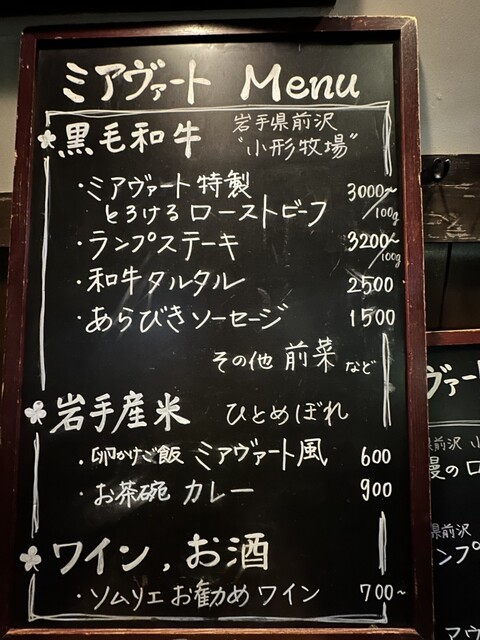 ミアヴァート Menu
黒毛和牛 岩手県前沢
"小形牧場"
・ミアヴァート特製
とろけるローストビーフ 3000~/100g
・ランプステーキ 3200~/100g
・和牛タルタル 2500
・あらびきソーセージ 1500
その他 前菜 など
岩手産米 ひとめぼれ
・卵かけご飯 ミアヴァート風 600
・お茶碗 カレー 900
ワイン , お酒
・ソムリエお勧めワイン 700~